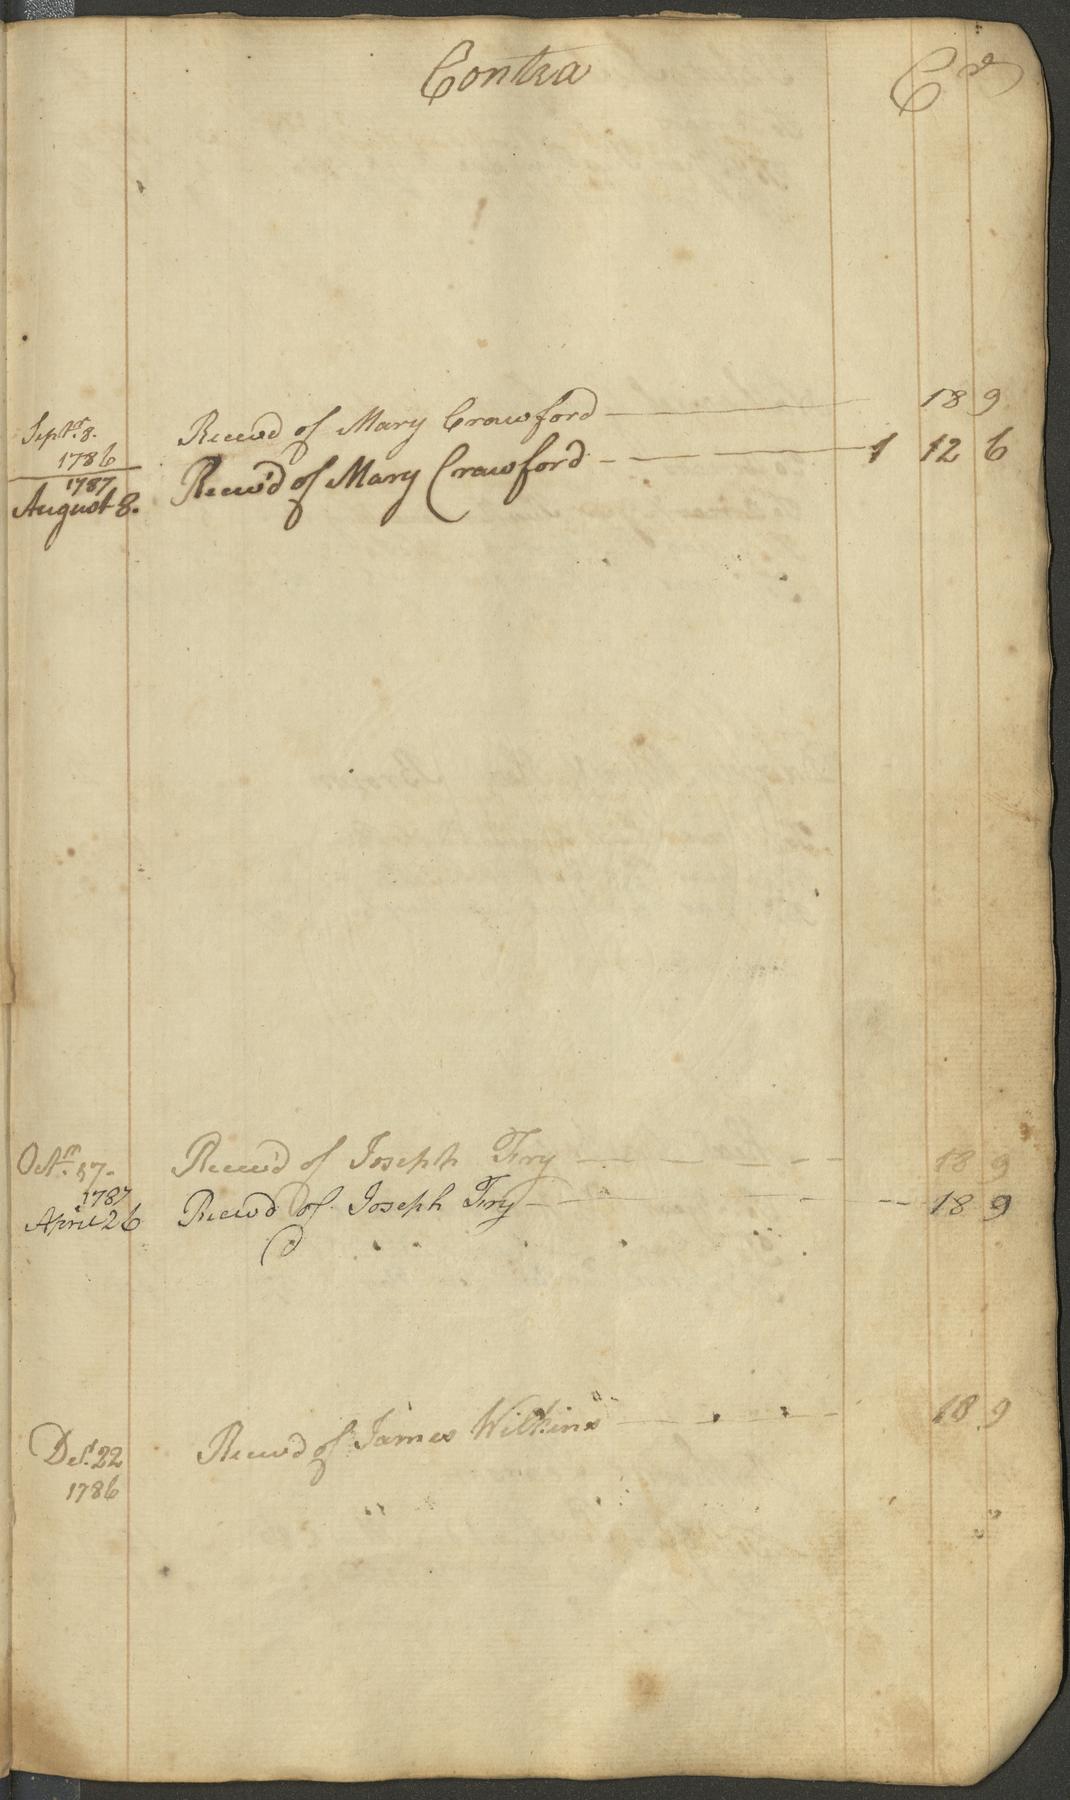 Contra Cr
Septr. 8. Receivd of Mary Crawford 18 9
1786
1787
August 8. Receivd of Mary Crawford 1 12 6
Octr. 17. Receivd of Joseph Fry 18 9
1787
April 26 Receivd of Joseph Fry 18 9
Decr. 22 Receivd of James Wilkins 18 9
1786